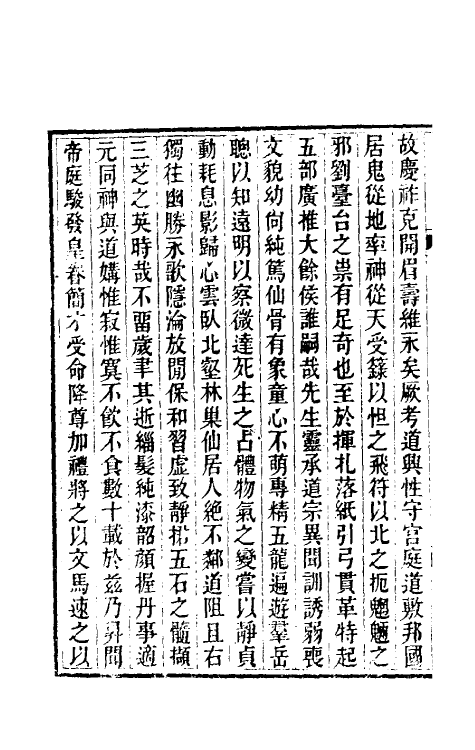 故慶祚克開眉壽維永矣厥考道興性守官庭道敷邦國
居鬼從地率神從天受籙以怛之飛符以北之扼魍魎之
邪劉臺台之祟有足奇也至於揮札落紙引弓貫革特起
五部廣推大餘俟誰嗣哉先生靈承道宗異聞訓誘弱喪
文貌幼尚純篤仙骨有象童心不萌專精五龍遍遊羣岳
聰以知遠明以察微達死生之占體物氣之變嘗以靜貞
動耗息影歸心雲臥北壑林巢仙居人絕不鄰道阻且右
獨往幽勝永歌隱淪放閒保和習虛致靜拾五石之髓擷
三芝之英時哉不畱歲聿其逝緇髮純漆韶顔握丹事適
元同神與道媾惟寂惟寞不飮不食數十載於兹乃昇聞
帝庭駿發皇眷簡才受命降尊加禮將之以文馬速之以